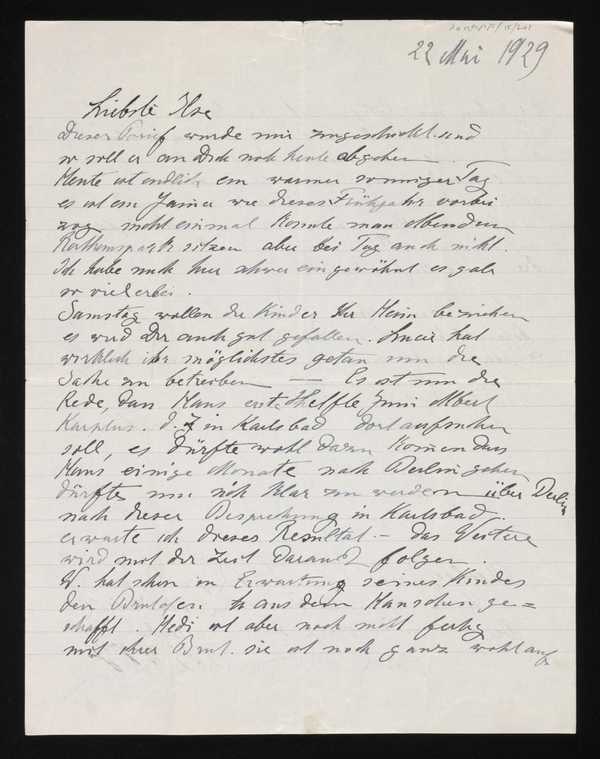 22 Mai 1929
Liebste Ilse
dieser Brief wurde mir zugeschickt und
so soll er an Dich noch heute abgehen —
Heute ist endlich ein warmer sonniger Tag
es ist ein Jammer wie dieses Frühjahr vorbei
zog nicht einmal konnte man Abends im
sitzen aber bei Tag auch nicht.
Ich habe mich hier schwer eingewöhnt es gab
so vielerlei.
Samstag wollen die Kinder Ihr Heim beziehen
es wird Dir auch gut gefallen. Lucie hat
wirklich ihr möglichstes getan um die
Sache zu betreiben — Es ist nun die
Rede, dass Hans erste Hälfte Juni Albert
Karplus. d. Z in Karlsbad dort aufsuchen
soll, es dürfte wohl dazu kommen dass
Hans einige Monate nach Berlin gehen
dürfte um sich klar zu werden über Berlin
nach dieser Besprechung in Karlsbad
erwarte ich dieses Resultat. – das Weitere
wird mit der Zeit daraus folgen.
W. hat schon in Erwartung seines Kindes
den aus dem Häuschen ge=
schafft. Hedi ist aber noch nicht fertig
mit ihrer Brut. sie ist noch ganz wohlauf